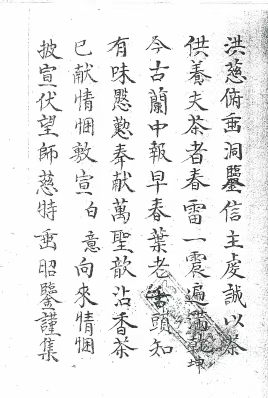 洪慈俯垂洞鑒信主虔誠以茶
供養夫茶者春雷一震遍滿乾坤
今古蘭中報早春葉老舌頭知
有味慇懃奉献萬聖歆沾香茶
已献情悃敷宣 白 意向來情悃
披宣伏望師慈特垂昭鑒謹集